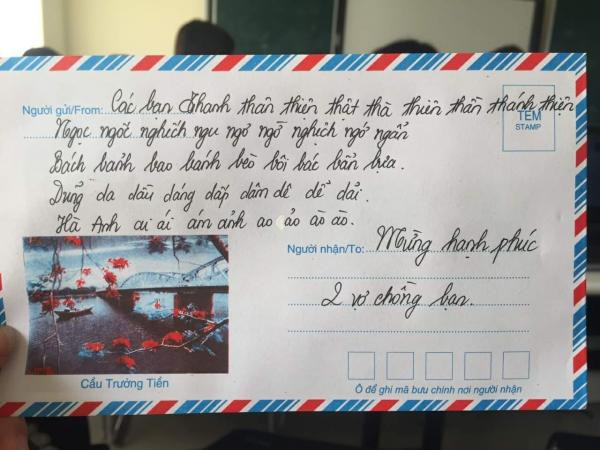 Người gửi/From: Các bạn Thanh thân thiện thật thà thiên thần thánh thiện
TEM
STAMP
Ngọc ngơi nghịch ngu ngơ ngô nghịch ngơ ngẩn
Bách bánh bao bánh bèo bôi bác bẩn bựa.
Dung da dầu dáng dấp dâm dê dể dải.
Hà Anh ai ái ám ảnh ao ảo ào ào.
Người nhận/To: Mừng hạnh phúc
2 vợ chồng bạn.
Cầu Trường Tiền
Ô để ghi mã bưu chính nơi người nhận